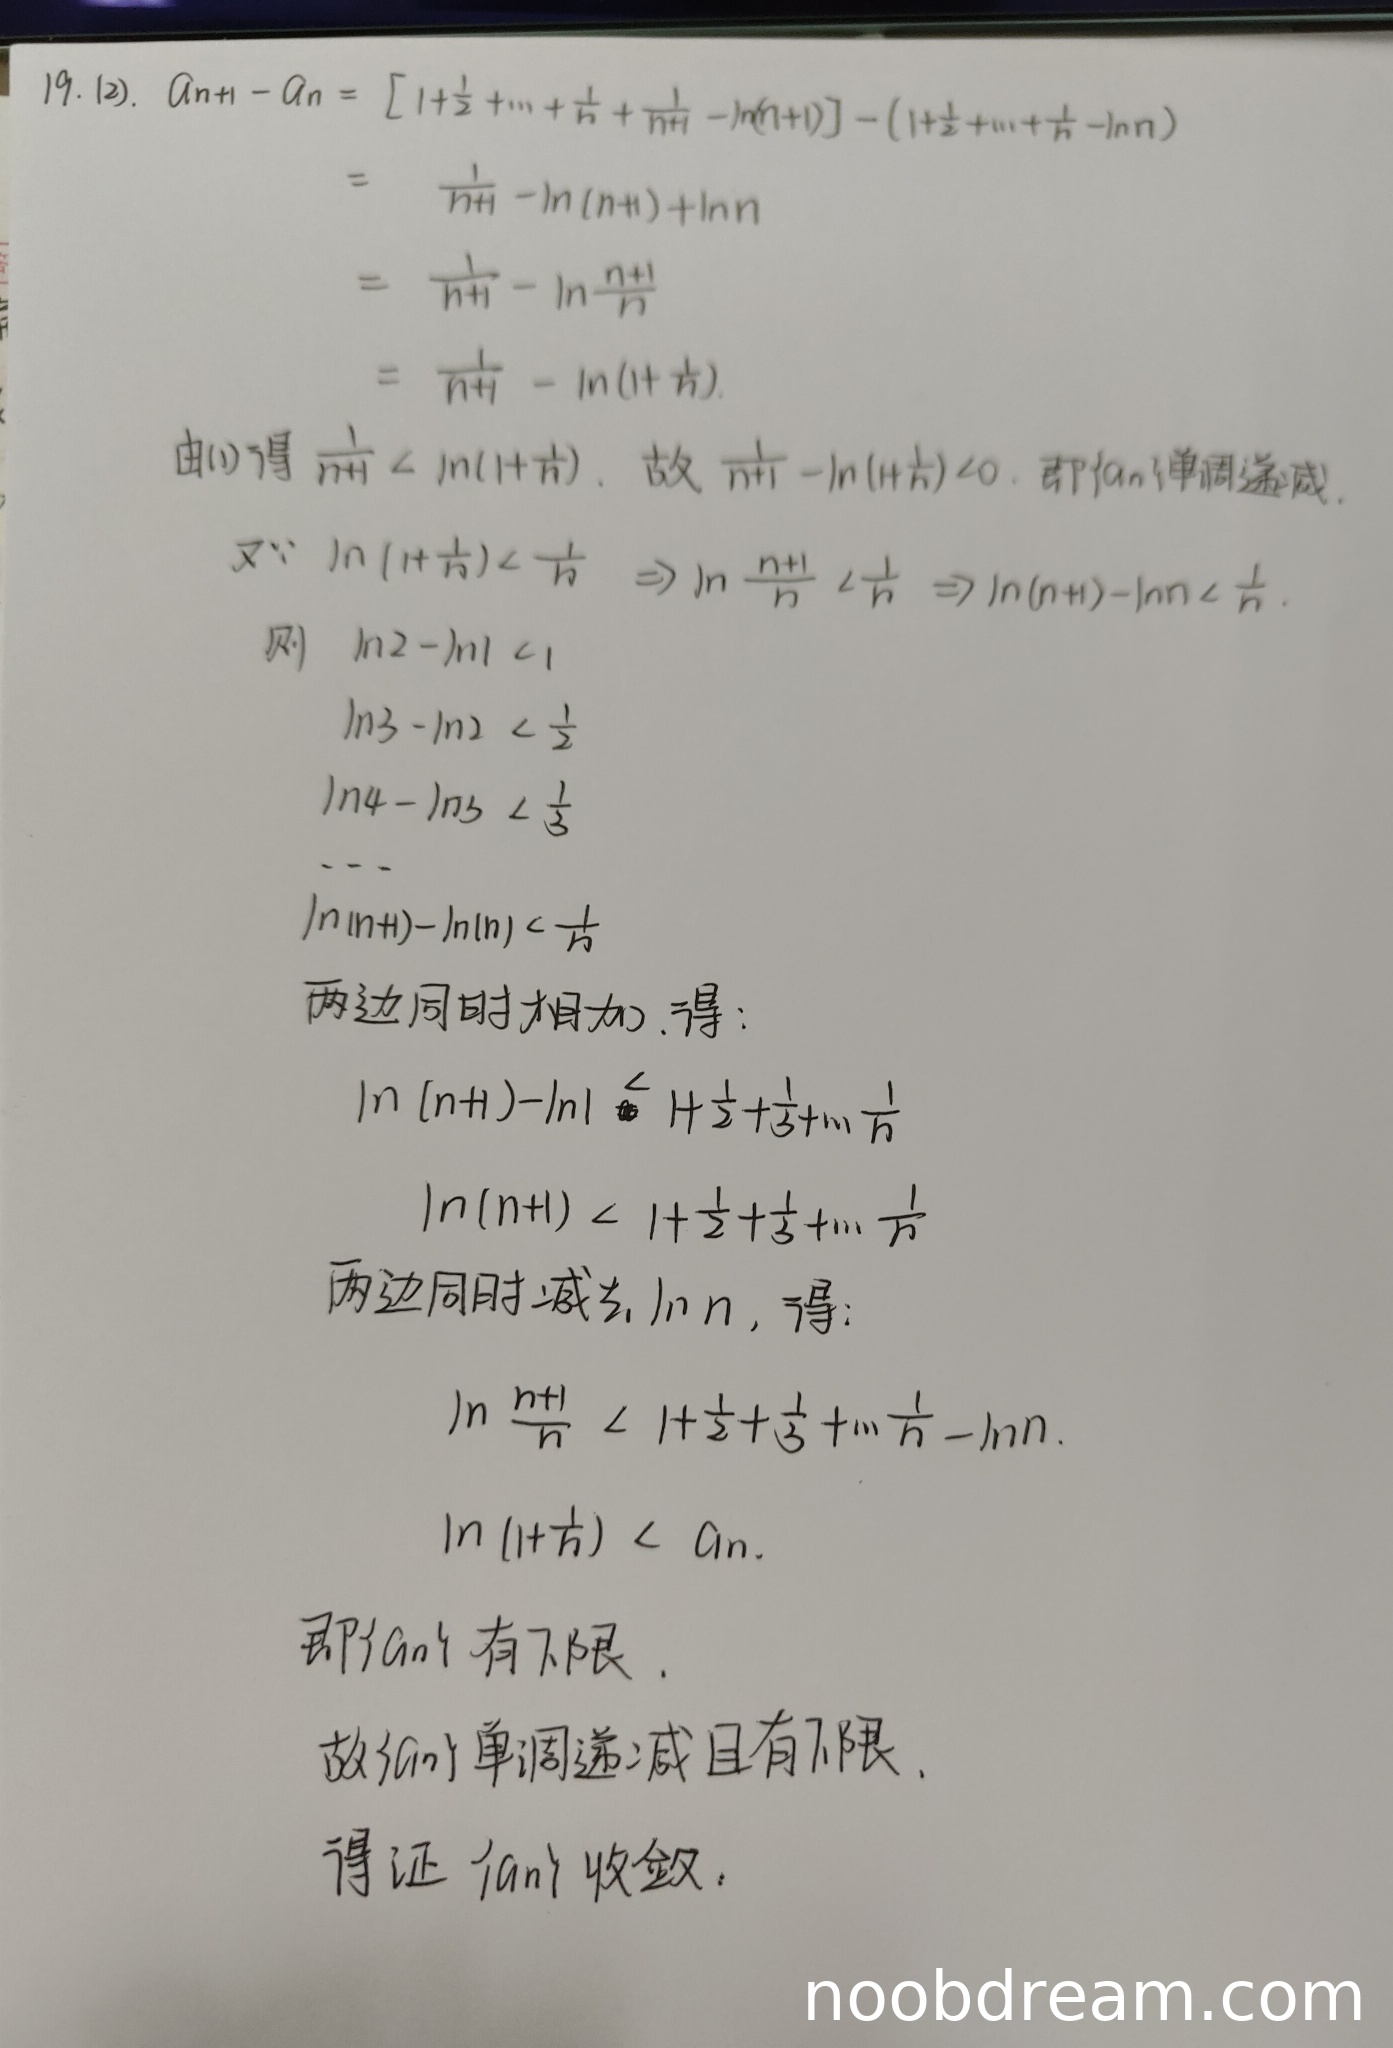 19. (2). an+1 - an = [1+1/2+…+1/n+1/(n+1) - ln(n+1)] - (1+1/2+…+1/n - ln n)
= 1/(n+1) - ln(n+1) + ln n
= 1/(n+1) - ln (n+1)/n
= 1/(n+1) - ln(1+1/n).
由(1)得 1/(n+1) < ln(1+1/n). 故 1/(n+1) - ln(1+1/n) < 0. 即{an}单调递减.
又∵ ln(1+1/n) < 1/n ⇒ ln (n+1)/n < 1/n ⇒ ln(n+1) - ln n < 1/n.
则 ln2 - ln1 < 1
ln3 - ln2 < 1/2
ln4 - ln3 < 1/3
---
ln(n+1) - ln(n) < 1/n
两边同时相加.得:
ln(n+1) - ln1 < 1+1/2+1/3+…1/n
ln(n+1) < 1+1/2+1/3+…1/n
两边同时减去 ln n, 得:
ln (n+1)/n < 1+1/2+1/3+…1/n - ln n.
ln(1+1/n) < an.
即{an}有下限.
故{an}单调递减且有下限.
得证{an}收敛.
noobdream.com